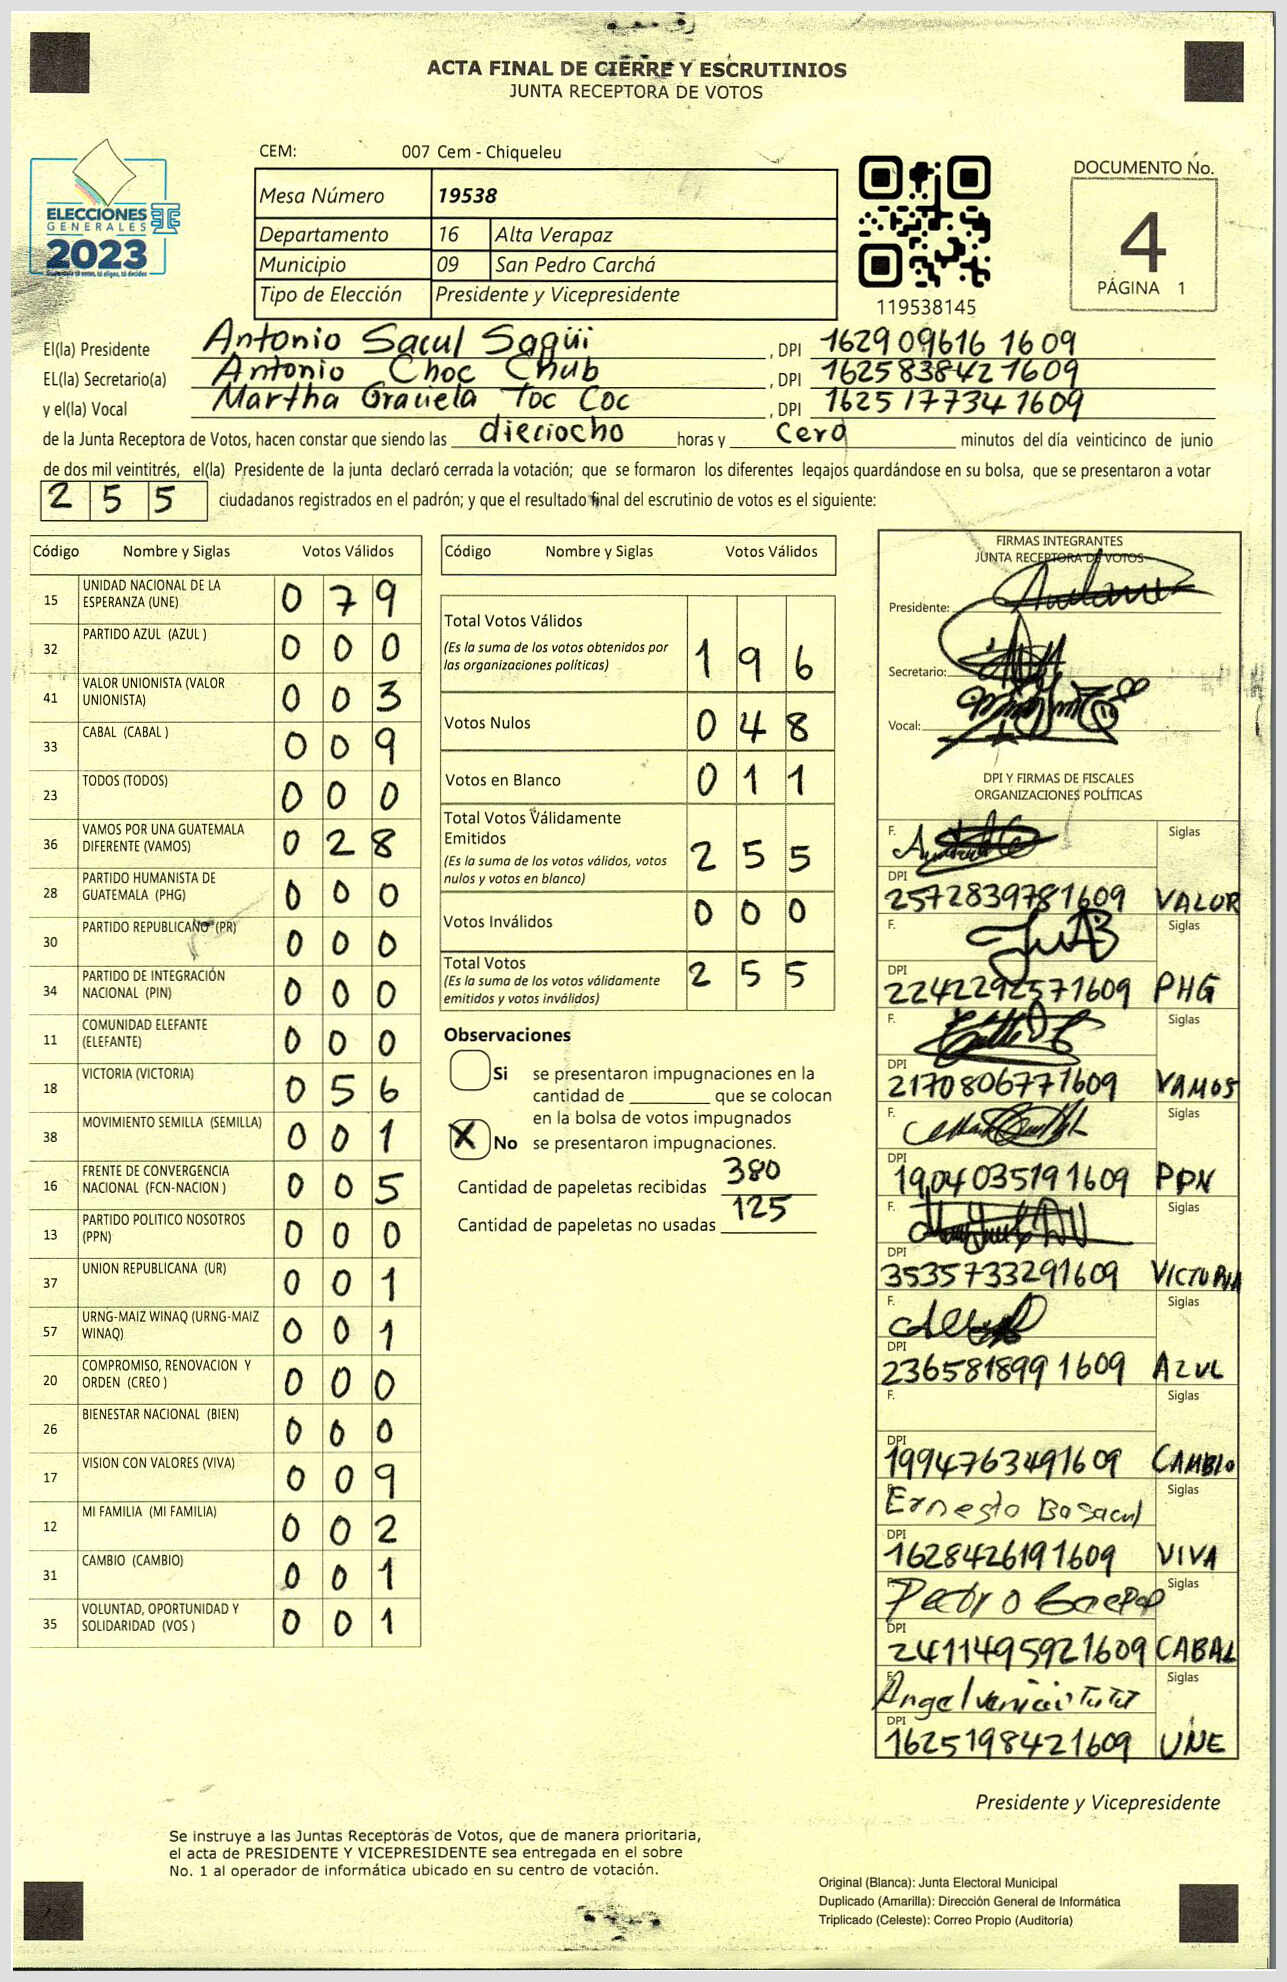 ACTA FINAL DE CIERRE Y ESCRUTINIOS
JUNTA RECEPTORA DE VOTOS
ELECCIONES
GENERALES
2023
CEM: 007 Cem - Chiqueleu
Mesa Número 19538
Departamento 16 Alta Verapaz
Municipio 09 San Pedro Carchá
Tipo de Elección Presidente y Vicepresidente
119538145
DOCUMENTO No.
4
PÁGINA 1
El(la) Presidente Antonio Sacul Saqüi , DPI 1629 09616 1609
EL(la) Secretario(a) Antonio Choc Chub , DPI 162583842 1609
y el(la) Vocal Martha Graciela Toc Coc , DPI 1625 17734 1609
de la Junta Receptora de Votos, hacen constar que siendo las dieciocho horas y cero minutos del día veinticinco de junio
de dos mil veintitrés, el(la) Presidente de la junta declaró cerrada la votación; que se formaron los diferentes legajos guardándose en su bolsa, que se presentaron a votar
255 ciudadanos registrados en el padrón; y que el resultado final del escrutinio de votos es el siguiente:
Código Nombre y Siglas Votos Válidos
15 UNIDAD NACIONAL DE LA ESPERANZA (UNE) 079
32 PARTIDO AZUL (AZUL ) 000
41 VALOR UNIONISTA (VALOR UNIONISTA) 003
33 CABAL (CABAL ) 009
23 TODOS (TODOS) 000
36 VAMOS POR UNA GUATEMALA DIFERENTE (VAMOS) 028
28 PARTIDO HUMANISTA DE GUATEMALA (PHG) 000
30 PARTIDO REPUBLICANO (PR) 000
34 PARTIDO DE INTEGRACIÓN NACIONAL (PIN) 000
11 COMUNIDAD ELEFANTE (ELEFANTE) 000
18 VICTORIA (VICTORIA) 056
38 MOVIMIENTO SEMILLA (SEMILLA) 001
16 FRENTE DE CONVERGENCIA NACIONAL (FCN-NACION ) 005
13 PARTIDO POLITICO NOSOTROS (PPN) 000
37 UNION REPUBLICANA (UR) 001
57 URNG-MAIZ WINAQ (URNG-MAIZ WINAQ) 001
20 COMPROMISO, RENOVACION Y ORDEN (CREO ) 000
26 BIENESTAR NACIONAL (BIEN) 000
17 VISION CON VALORES (VIVA) 009
12 MI FAMILIA (MI FAMILIA) 002
31 CAMBIO (CAMBIO) 001
35 VOLUNTAD, OPORTUNIDAD Y SOLIDARIDAD (VOS ) 001
Código Nombre y Siglas Votos Válidos
Total Votos Válidos 196
(Es la suma de los votos obtenidos por
las organizaciones políticas)
Votos Nulos 048
Votos en Blanco 011
Total Votos Válidamente
Emitidos 255
(Es la suma de los votos válidos, votos
nulos y votos en blanco)
Votos Inválidos 000
Total Votos 255
(Es la suma de los votos válidamente
emitidos y votos inválidos)
Observaciones
Si se presentaron impugnaciones en la
cantidad de ________ que se colocan
en la bolsa de votos impugnados
X No se presentaron impugnaciones.
Cantidad de papeletas recibidas 380
Cantidad de papeletas no usadas 125
FIRMAS INTEGRANTES
JUNTA RECEPTORA DE VOTOS
Presidente:
Secretario:
Vocal:
DPI Y FIRMAS DE FISCALES
ORGANIZACIONES POLÍTICAS
F. Siglas
DPI
2572839781609 VALOR
F. Siglas
DPI
2242292571609 PHG
F. Siglas
DPI
2170806771609 VAMOS
F. Siglas
DPI
1904035191609 PPN
F. Siglas
DPI
3535733291609 VICTORIA
F. Siglas
DPI
2365818991609 AZUL
F. Siglas
DPI
1994763491609 CAMBIO
Ernesto Siglas
DPI
1628426191609 VIVA
F. Pedro Siglas
DPI
2411495921609 CABAL
F. Angel Siglas
DPI
1625198421609 UNE
Presidente y Vicepresidente
Se instruye a las Juntas Receptoras de Votos, que de manera prioritaria,
el acta de PRESIDENTE Y VICEPRESIDENTE sea entregada en el sobre
No. 1 al operador de informática ubicado en su centro de votación.
Original (Blanca): Junta Electoral Municipal
Duplicado (Amarilla): Dirección General de Informática
Triplicado (Celeste): Correo Propio (Auditoría)